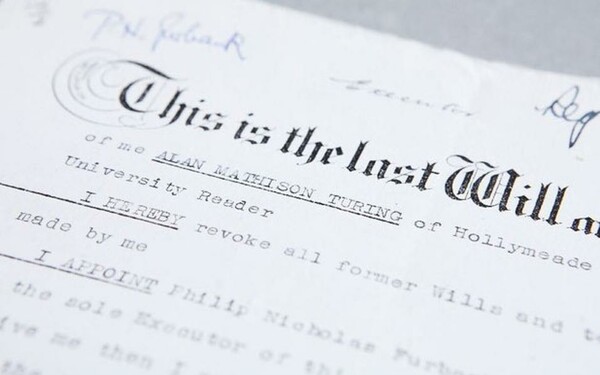 P.N. Furbank
Executor
This is the last Will
of me ALAN MATHISON TURING of Hollymeade
University Reader
I HEREBY revoke all former Wills and
made by me
I APPOINT Philip Nicholas
the sole Executor of
me then I
the